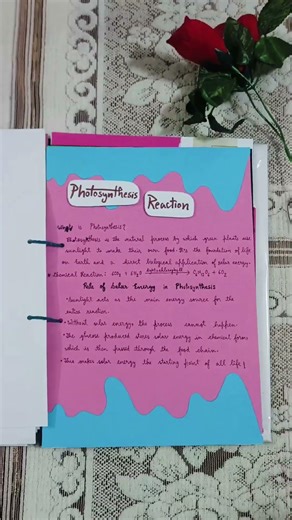 Photosynthesis
Reaction
is Photosynthesis?
Photosynthesis is the natural process by which green plants use
sunlight to make their own food. It's the foundation of life
on earth and a direct biological application of solar energy.
Chemical Reaction: CO₂ + 6H₂O → C₆H₁₂O₆ + 6O₂
Role of Solar Energy in Photosynthesis
• Sunlight acts as the main energy source for the
entire reaction.
• Without solar energy, the process cannot happen.
• The glucose produced stores solar energy in chemical forms
which is then passed through the food chain.
• This makes solar energy the starting point of all life